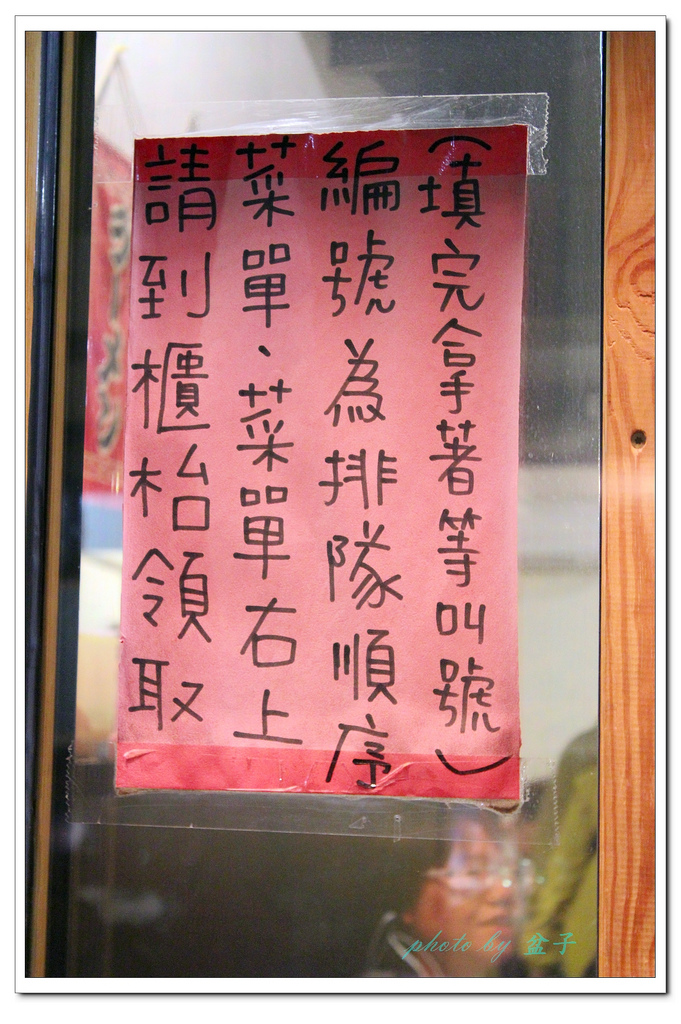 請到櫃枱領取
菜單、菜單右上
編號為排隊順序
(填完拿著等叫號)
ラーメン
photo by 盆子